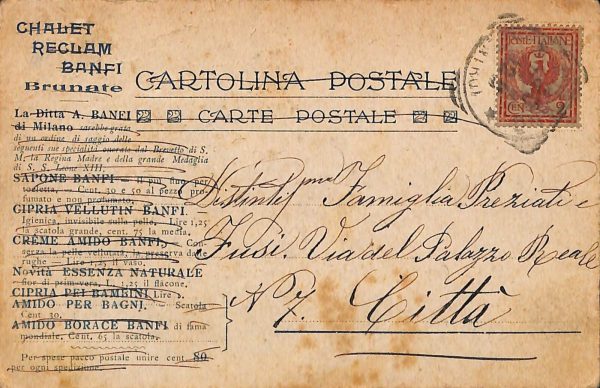 CHALET
RECLAM
BANFI
Brunate
CARTOLINA POSTALE
CARTE POSTALE
POSTE ITALIANE
CEN. 2
La Ditta A. BANFI
di Milano sarebbe grata
di un ordine di saggio delle
seguenti sue specialità onorate dal Brevetto di S.
M. la Regina Madre e della grande Medaglia
di S. S. Leone XIII.
SAPONE BANFI — il più fino per
toeletta, — Cent. 30 e 50 al pezzo pro-
fumato e non profumato.
CIPRIA VELLUTIN BANFI. —
Igienica, invisibile sulla pelle. — Lire 1,25
la scatola grande, cent. 75 la media.
CRÈME AMIDO BANFI, — Con-
serva la pelle vellutata, la preserva dalle
rughe — Lire 1,25 il vaso.
Novità ESSENZA NATURALE
fior di primavera, L. 1,25 il flacone.
CIPRIA PEI BAMBINI Lire
AMIDO PER BAGNI. Scatola
Cent. 30.
AMIDO BORACE BANFI di fama
mondiale. Cent. 65 la scatola.
Per spese pacco postale unire cent. 80
per ogni spedizione.
Distintissma Famiglia Preziati e
Fusi. Via del Palazzo Reale
N 7. Città